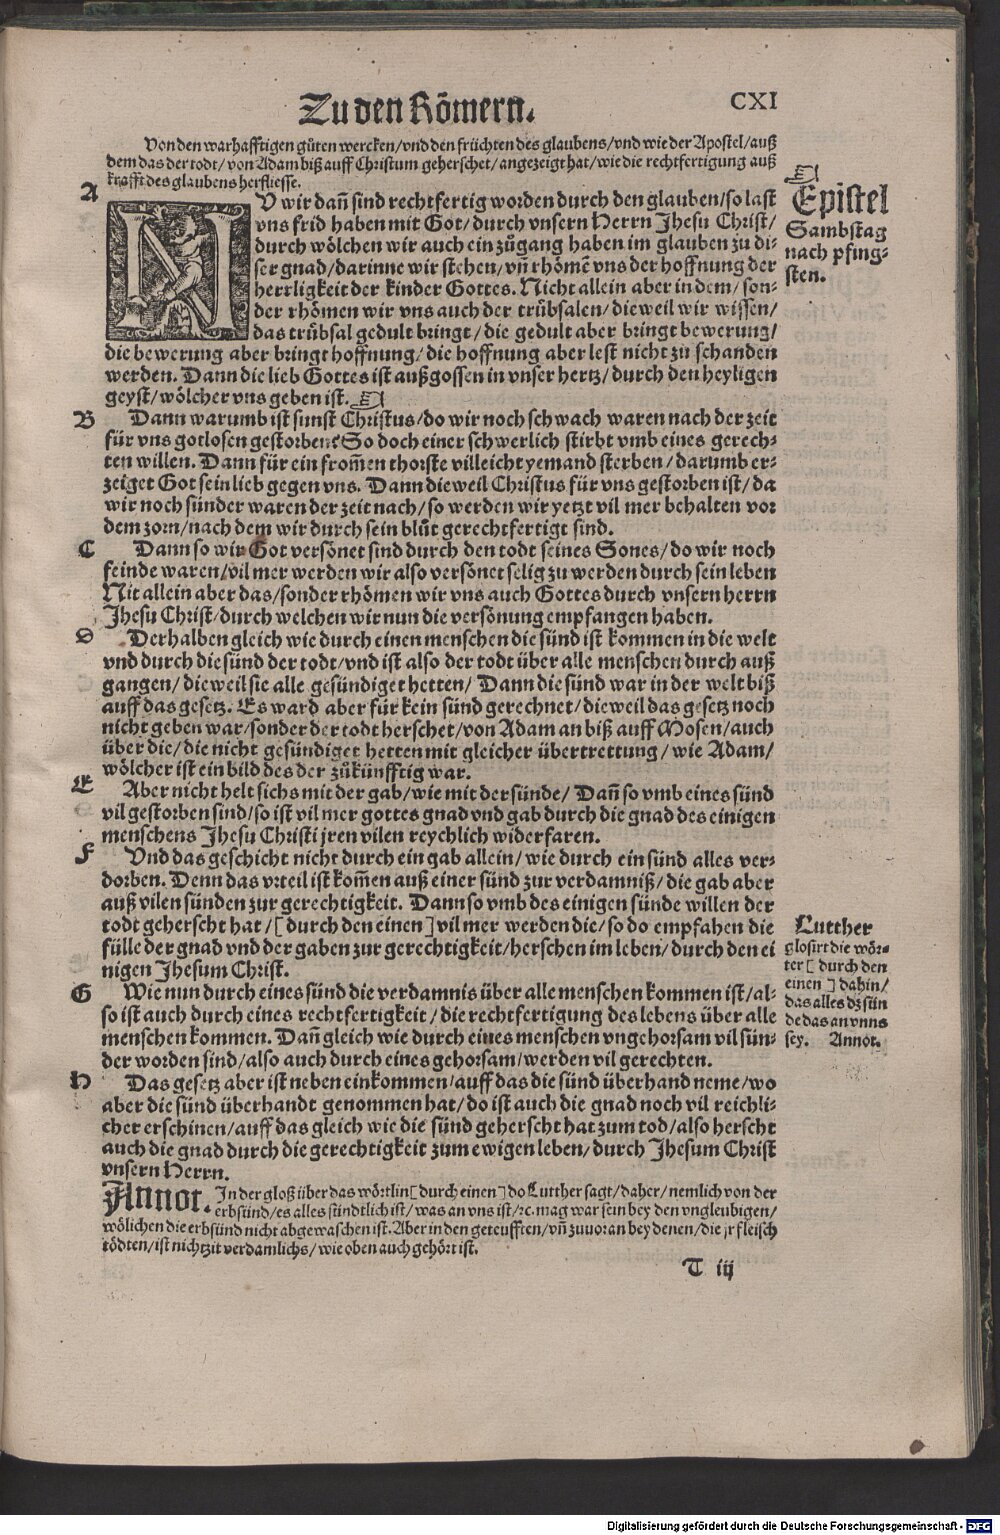 Zu den Römern.
CXI
Von den warhafftigen gůten wercken/vnd den früchten des glaubens/vnd wie der Apostel/auß
dem das der todt/von Adam biß auff Christum geherschet/angezeigt hat/wie die rechtfertigung auß
krafft des glaubens herfliesse.
A
NV wir dañ sind rechtfertig worden durch den glauben/so last
vns frid haben mit Got/durch vnsern Herrn Jhesu Christ/
durch wölchen wir auch ein zůgang haben im glauben zu di-
ser gnad/darinne wir stehen/vñ rhömẽ vns der hoffnung der
herrligkeit der kinder Gottes. Nicht allein aber in dem/son-
der rhömen wir vns auch der trübsalen/dieweil wir wissen/
das trübsal gedult bringt/die gedult aber bringt bewerung/
die bewerung aber bringt hoffnung/die hoffnung aber lest nicht zu schanden
werden. Dann die lieb Gottes ist außgossen in vnser hertz/durch den heyligen
geyst/wölcher vns geben ist.
Epistel
Sambstag
nach pfing-
sten.
B
Dann warumb ist sunst Christus/do wir noch schwach waren nach der zeit
für vns gotlosen gestorben? So doch einer schwerlich stirbt vmb eines gerech-
ten willen. Dann für ein from̃en thorste villeicht yemand sterben/darumb er-
zeiget Got sein lieb gegen vns. Dann dieweil Christus für vns gestorben ist/da
wir noch sünder waren der zeit nach/so werden wir yetzt vil mer behalten vor
dem zorn/nach dem wir durch sein blůt gerechtfertigt sind.
C
Dann so wir Got versönet sind durch den todt seines Sones/do wir noch
feinde waren/vil mer werden wir also versönet selig zu werden durch sein leben
Nit allein aber das/sonder rhömen wir vns auch Gottes durch vnsern herrn
Jhesu Christ/durch welchen wir nun die versönung empfangen haben.
D
Derhalben gleich wie durch einen menschen die sünd ist kommen in die welt
vnd durch die sünd der todt/vnd ist also der todt über alle menschen durch auß
gangen/dieweil sie alle gesündiget hetten/Dann die sünd war in der welt biß
auff das gesetz. Es ward aber für kein sünd gerechnet/dieweil das gesetz noch
nicht geben war/sonder der todt herschet/von Adam an biß auff Mosen/auch
über die/die nicht gesündiget hetten mit gleicher übertrettung/wie Adam/
wölcher ist ein bild des der zůkünfftig war.
E
Aber nicht helt sichs mit der gab/wie mit der sünde/Dañ so vmb eines sünd
vil gestorben sind/so ist vil mer gottes gnad vnd gab durch die gnad des einigen
menschens Jhesu Christi jren vilen reychlich widerfaren.
F
Vnd das geschicht nicht durch ein gab allein/wie durch ein sünd alles ver-
dorben. Denn das vrteil ist kom̃en auß einer sünd zur verdamniß/die gab aber
auß vilen sünden zur gerechtigkeit. Dann so vmb des einigen sünde willen der
todt geherscht hat/[durch den einen] vil mer werden die/so do empfahen die
fülle der gnad vnd der gaben zur gerechtigkeit/herschen im leben/durch den ei
nigen Jhesum Christ.
Lutther
glosirt die wör-
ter [durch den
einen] dahin/
das alles dz sün
de das an vnns
sey. Annot.
G
Wie nun durch eines sünd die verdamnis über alle menschen kommen ist/al-
so ist auch durch eines rechtfertigkeit/die rechtfertigung des lebens über alle
menschen kommen. Dañ gleich wie durch eines menschen vngehorsam vil sün-
der worden sind/also auch durch eines gehorsam/werden vil gerechten.
H
Das gesetz aber ist neben einkommen/auff das die sünd überhand neme/wo
aber die sünd überhandt genommen hat/do ist auch die gnad noch vil reichli-
cher erschinen/auff das gleich wie die sünd geherscht hat zum tod/also herscht
auch die gnad durch die gerechtigkeit zum ewigen leben/durch Jhesum Christ
vnsern Herrn.
Annot. In der gloß über das wörtlin [durch einen] do Lutther sagt/daher/nemlich von der
erbsünd/es alles sündtlich ist/was an vns ist/⁊c. mag war sein bey den vngleubigen/
wölichen die erbsünd nicht abgewaschen ist. Aber in den geteufften/vñ zuuoran bey denen/die jr fleisch
tödten/ist nichtzit verdamlichs/wie oben auch gehört ist.
T iij
Digitalisierung gefördert durch die Deutsche Forschungsgemeinschaft - DFG